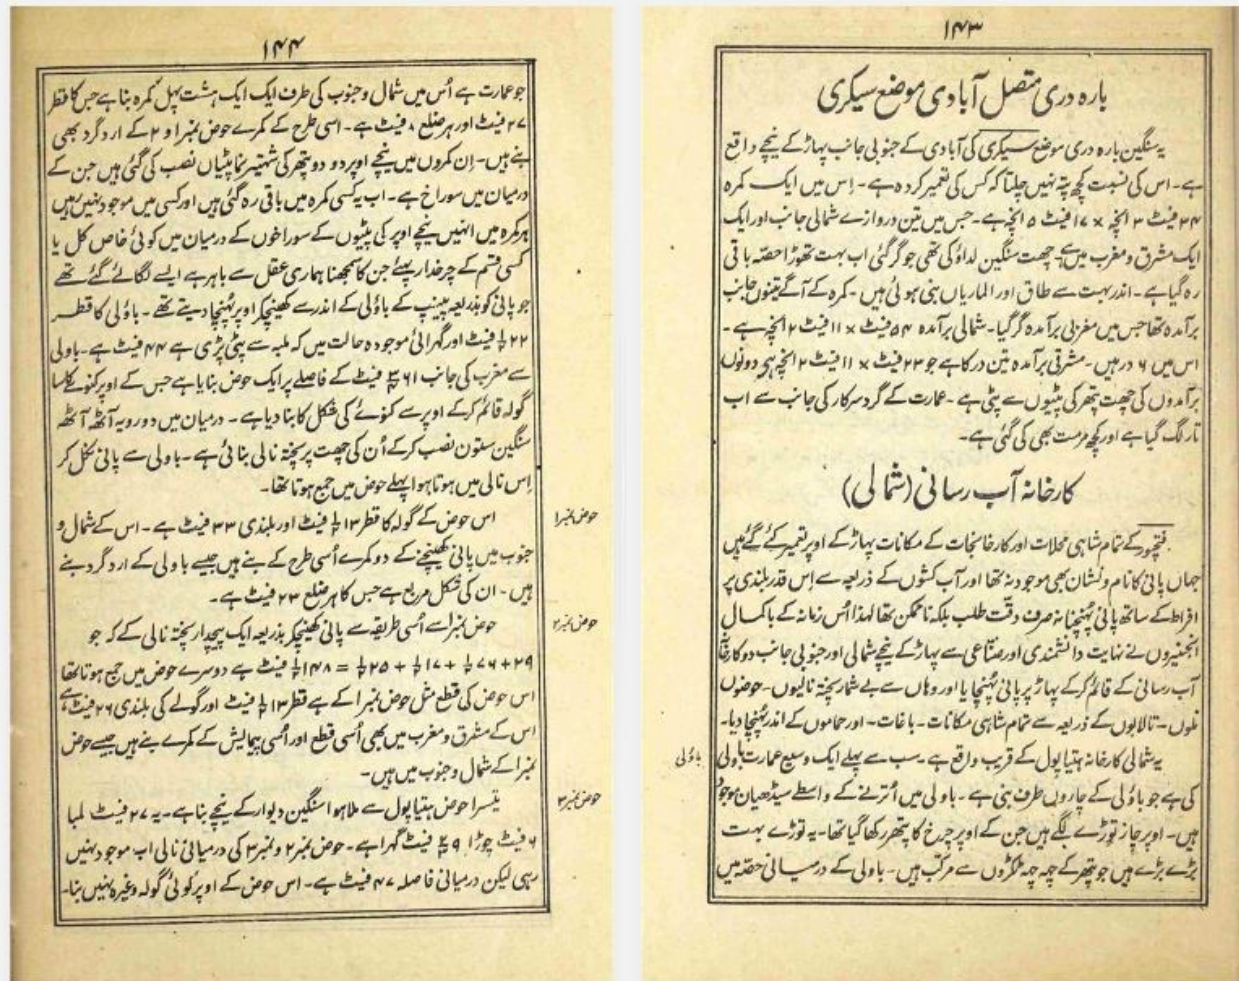 ۱۴۳
بارہ دری متصل آبادی موضع سیکری
یہ سنگین بارہ دری موضع سیکری کی آبادی کے جنوبی جانب پہاڑ کے نیچے واقع
ہے۔ اس کی نسبت کچھ پتہ نہیں چلتا کہ کس کی تعمیر کردہ ہے۔ اِس میں ایک کمرہ
۲۴ فیٹ ۳ انچہ × ۱۷ فیٹ ۵ انچہ ہے۔ جس میں تین دروازے شمالی جانب اور ایک
ایک مشرق و مغرب میں ہے۔ چھت سنگین لداؤ کی تھی جو گر گئی اب بہت تھوڑا حصّہ باقی
رہ گیا ہے۔ اندر بہت سے طاق اور الماریاں بنی ہوئی ہیں۔ کمرہ کے آگے تینوں جانب
برآمدہ تھا جس میں مغربی برآمدہ گر گیا۔ شمالی برآمدہ ۵۴ فیٹ × ۱۱ فیٹ ۲ انچہ ہے۔
اس میں ۶ در ہیں۔ مشرقی برآمدہ تین در کا ہے جو ۲۳ فیٹ × ۱۱ فیٹ ۲ انچہ ہے دونوں
برآمدوں کی چھت پتھر کی پٹیوں سے پٹی ہے۔ عمارت کے گرد سرکار کی جانب سے اب
تار لگ گیا ہے اور کچھ مرمت بھی کی گئی ہے۔
کارخانہ آب رسانی (شمالی)
فتحپور کے تمام شاہی محلات اور کارخانجات کے مکانات پہاڑ کے اوپر تعمیر کئے گئے ہیں
جہاں پانی کا نام و نشان بھی موجود نہ تھا اور آب کشوں کے ذریعہ سے اِس قدر بلندی پر
افراط کے ساتھ پانی پُہنچنا نہ صرف دقّت طلب بلکہ ناممکن تھا لہذا اُس زمانہ کے باکمال
انجنیروں نے نہایت دانشمندی اور صنّاعی سے پہاڑ کے نیچے شمالی اور جنوبی جانب دو کارخانے
آب رسانی کے قائم کر کے پہاڑ پر پانی پُہنچایا اور وہاں سے بے شمار پختہ نالیوں۔ حوضوں
نلوں۔ تالابوں کے ذریعہ سے تمام شاہی مکانات۔ باغات۔ اور حماموں کے اندر پُہنچا دیا۔
یہ شمالی کارخانہ ہتیا پول کے قریب واقع ہے۔ سب سے پہلے ایک وسیع عمارت باولی
باؤلی
کی ہے جو باؤلی کے چاروں طرف بنی ہے۔ باولی میں اُترنے کے واسطے سیڑھیان موجود
ہیں۔ اوپر چار توڑے لگے ہیں جن کے اوپر چرخ کا پتھر رکھا گیا تھا۔ یہ توڑے بہت
بڑے بڑے ہیں جو پتھر کے چھ چھ ٹکڑوں سے مرکب ہیں۔ باولی کے درمیانی حصّہ میں
۱۴۴
جو عمارت ہے اُس میں شمال و جنوب کی طرف ایک ایک ہشت پہل کمرہ بنا ہے جس کا قطر
۲۷ فیٹ اور ہر ضلع ۸ فیٹ ہے۔ اسی طرح کے کمرے حوض نمبر ۱ و ۲ کے ارد گرد بھی
بنے ہیں۔ اِن کمروں میں نیچے اوپر دو دو پتھر کی شہتیر نما پٹیاں نصب کی گئی ہیں جن کے
درمیان میں سوراخ ہے۔ اب یہ کسی کمرہ میں باقی رہ گئی ہیں اور کسی میں موجود نہیں رہیں
ہر کمرہ میں انہیں نیچے اوپر کی پٹیوں کے سوراخوں کے درمیان میں کوئی خاص کل یا
کسی قسم کے چرخدار پہئے جن کا سمجھنا ہماری عقل سے باہر ہے ایسے لگائے گئے تھے
جو پانی کو بذریعہ پمپ کے باؤلی کے اندر سے کھینچکر اوپر پُہنچا دیتے تھے۔ باؤلی کا قطر
۲۲ ½ فیٹ اور گہرائی موجودہ حالت میں کہ ملبہ سے پٹی پڑی ہے ۴۴ فیٹ ہے۔ باولی
سے مغرب کی جانب ۶۱ فیٹ کے فاصلے پر ایک حوض بنایا ہے جس کے اوپر کنوئے کا سا
گولہ قائم کر کے اوپر سے کنوئے کی شکل کا بنا دیا ہے۔ درمیان میں دو رویہ آٹھ آٹھ
سنگین ستون نصب کر کے اُن کی چھت پر پختہ نالی بنائی ہے۔ باولی سے پانی نکل کر
اِس نالی میں ہوتا ہوا پہلے حوض میں جمع ہوتا تھا۔
حوض نمبر ۱
اس حوض کے گولہ کا قطر ۱۳ ½ فیٹ اور بلندی ۳۳ فیٹ ہے۔ اس کے شمال و
جنوب میں پانی کھینچنے کے دو کمرے اُسی طرح کے بنے ہیں جیسے باولی کے ارد گرد بنے
ہیں۔ ان کی شکل مربع ہے جس کا ہر ضلع ۲۳ فیٹ ہے۔
حوض نمبر ۲
حوض نمبر ۱ سے اُسی طریقہ سے پانی کھینچکر بذریعہ ایک پیچدار پختہ نالی کے کہ جو
۲۹ + ۷۶ ½ + ۱۷ ½ + ۲۵ ½ = ۱۴۸ ½ فیٹ ہے دوسرے حوض میں جمع ہوتا تھا
اس حوض کی قطع مثل حوض نمبر ۱ کے ہے قطر ۱۳ ½ فیٹ اور گولے کی بلندی ۲۶ فیٹ ہے
اس کے مشرق و مغرب میں بھی اُسی قطع اور اُسی پیمایش کے کمرے بنے ہیں جیسے حوض
نمبر ۱ کے شمال و جنوب میں ہیں۔
حوض نمبر ۳
تیسرا حوض ہتیا پول سے ملا ہوا سنگین دیوار کے نیچے بنا ہے۔ یہ ۲۷ فیٹ لمبا
۶ فیٹ چوڑا ۹ فیٹ گہرا ہے۔ حوض نمبر ۲ و نمبر ۳ کی درمیانی نالی اب موجود نہیں
رہی لیکن درمیانی فاصلہ ۴۷ فیٹ ہے۔ اس حوض کے اوپر کوئی گولہ وغیرہ نہیں بنا۔